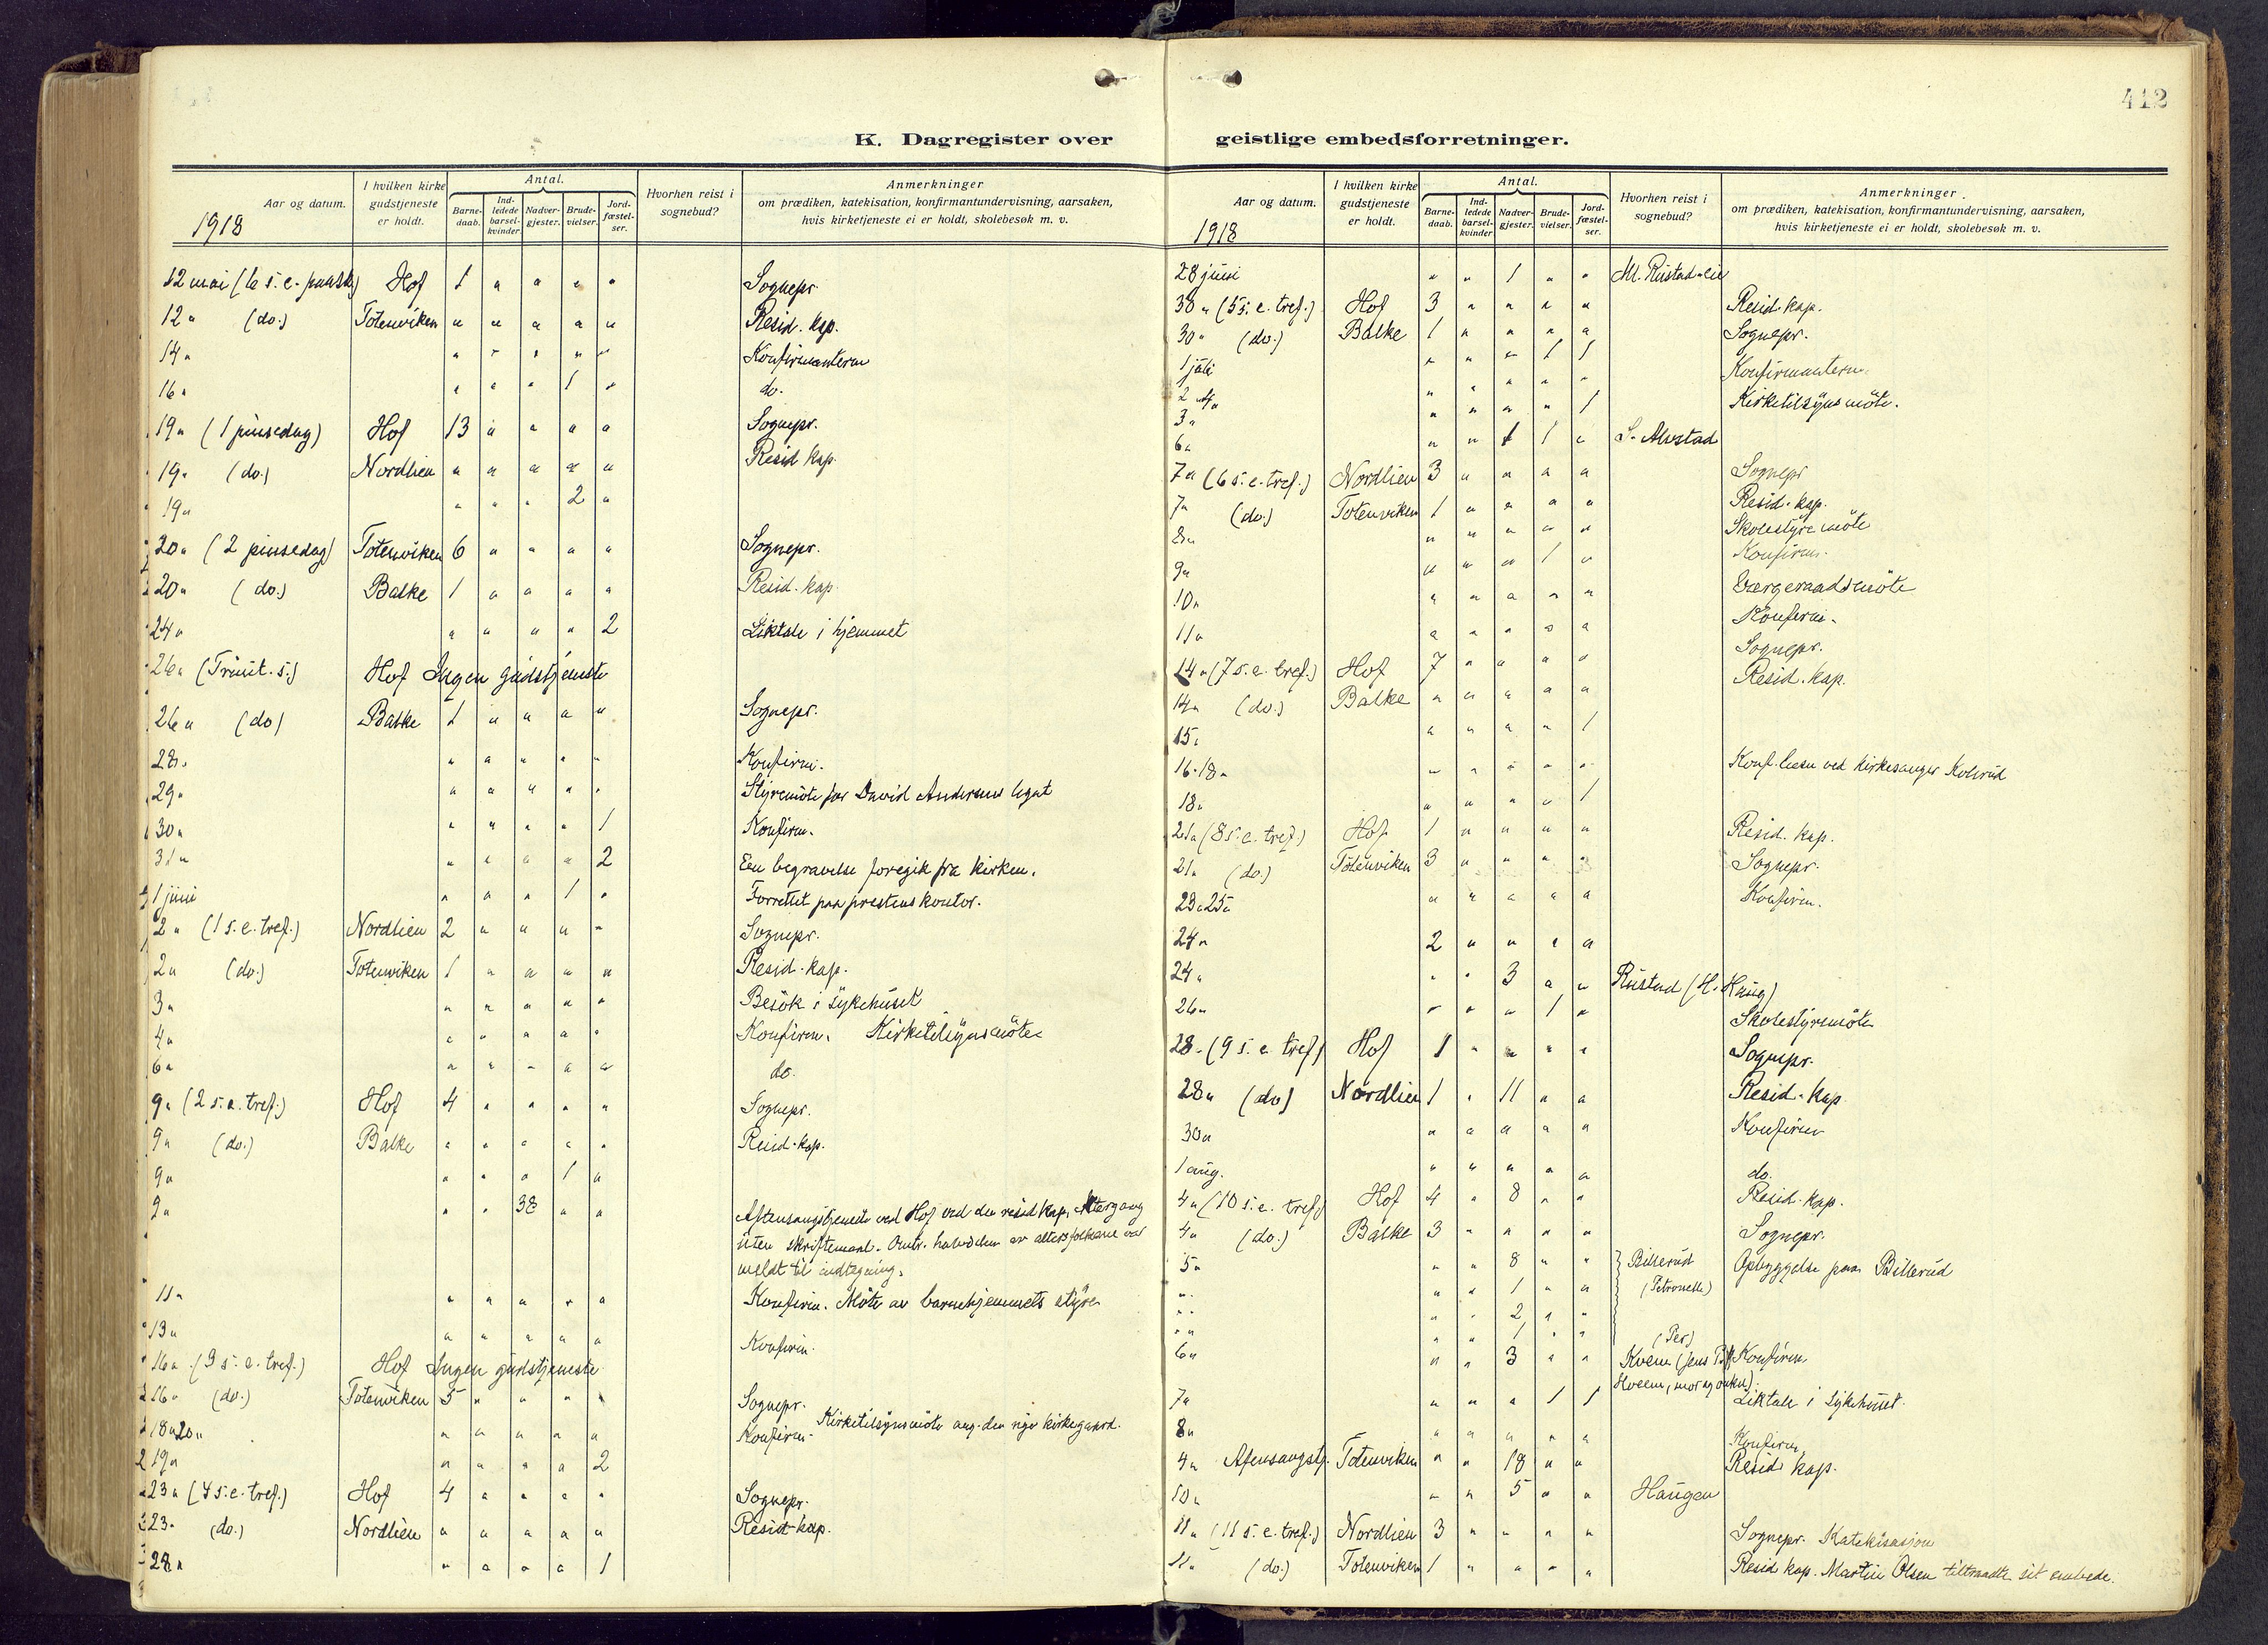 412
K. Dagregister over
geistlige embedsforretninger.
Aar og datum.
1918
I hvilken kirke
gudstjeneste
er holdt.
Antal.
Barne-
daab.
Ind-
ledede
barsel-
kvinder.
Nadver-
gjester.
Brude-
vielser.
Jord-
fæstel-
ser.
Hvorhen reist i
sognebud?
Anmerkninger
om prædiken, katekisation, konfirmantundervisning, aarsaken,
hvis kirketjeneste ei er holdt, skolebesøk m. v.
12 mai (6 s. e. paaske) Hof 1 " " " " Sognepr.
12 " (do.) Totenviken " " " " " Resid. kap.
14 " " " " " " Konfirmanterne
16 " " " " 1 " do.
19 " (1 pinsedag) Hof 13 " " " " Sognepr.
19 " (do.) Nordlien " " " " " Resid kap.
19 " " " " 2 "
20 " (2 pinsedag) Totenviken 6 " " " " Sognepr.
20 " (do.) Balke 1 " " " " Resid. kap.
24 " " " " " 2 Liktale i hjemmet
26 " (Trinit. s.) Hof Ingen gudstjeneste
26 " (do) Balke 1 " " " " Sognepr.
28 " " " " " " Konfirm.
29 " " " " " " Styremöte for David Andersens legat
30 " " " " " 1 Konfirm.
31 " " " " " 2 Een begravelse foregik fra kirken.
1 juni " " " 1 " Forrettet paa prestens kontor.
2 " (1 s. e. tref.) Nordlien 2 " " " " Sognepr.
2 " (do.) Totenviken 1 " " " " Resid. kap.
3 " " " " " " Besök i sykehuset
4 " " " " " " Konfirm. Kirketilsynsmöte
6 " " " " " " do.
9 " (2 s. e. tref.) Hof 4 " " " " Sognepr.
9 " (do.) Balke " " " " " Resid. kap.
9 " " " " 1 "
9 " " " 38 " " Aftensangstjeneste ved Hof ved den resid kap. Altergang
uten skriftemaal. Omtr. halvdelen av altersfolkene var
meldt til indtegning.
11 " " " " " " Konfirm. Möte av barnehjemmets styre
13 " " " " " " Konfirm.
16 " (3 s. e. tref.) Hof Ingen gudstjeneste
16 " (do.) Totenviken 5 " " " " Sognepr.
18 " 20 " " " " " " Konfirm. Kirketilsynsmöte ang. den nye kirkegaard.
19 " " " " " 2
23 " (4 s. e. tref.) Hof 4 " " " " Sognepr.
23 " (do.) Nordlien " " " " " Resid kap.
28 " " " " " 1
Aar og datum.
1918
I hvilken kirke
gudstjeneste
er holdt.
Antal.
Barne-
daab.
Ind-
ledede
barsel-
kvinder.
Nadver-
gjester.
Brude-
vielser.
Jord-
fæstel-
ser.
Hvorhen reist i
sognebud?
Anmerkninger.
om prædiken, katekisation, konfirmantundervisning, aarsaken,
hvis kirketjeneste ei er holdt, skolebesøk m. v.
28 juni " " 1 " " Ml. Rustad
30 " (5 s. e. tref.) Hof 3 " " " " Resid. kap.
30 " (do.) Balke 1 " " " " Sognepr.
1 juli " " " 1 1
2 " 4 " " " " " " Konfirmanterne
3 " " " " " 1 Kirketilsynsmöte.
6 " " " 1 1 " S. Alvstad
7 " (6 s. e. tref.) Nordlien 3 " " " " Sognepr
7 " (do.) Totenviken 1 " " " " Resid. kap.
8 " " " " " " Skolestyremöte
9 " " " " 1 " Konfirm.
10 " " " " " " Værgeraadsmöte
11 " " " " " " Konfirm.
14 " (7 s. e. tref.) Hof 7 " " " " Sognepr.
14 " (do.) Balke " " " " " Resid. kap.
15 " " " " " 1
16 - 18 " " " " " " Konf. læsn ved kirkesanger Kolsrud
18 " " " " " 1
21 " (8 s. e. tref.) Hof 1 " " " " Resid. kap.
21 " (do.) Totenviken 3 " " " " Sognepr.
23 " 25 " " " " " " Konfirm.
24 " 2 " " " "
24 " " " 3 " " Rustad (H. Haug)
26 " " " " 1 " Skolestyremöte
28 " (9 s. e. tref) Hof 1 " " " " Sognepr.
28 " (do) Nordlien 1 " 11 " " Resid. kap
30 " " " " " " Konfirm
1 aug. " " " " " do.
4 " (10 s. e. tref.) Hof 4 " 8 " " Resid. kap.
4 " (do.) Balke 3 " " " " Sognepr.
5 " " " 8 " " Billerud Opbyggelse paa Billerud
" " " " 1 " " (Petronelle)
" " " " 2 " "
" " " " 1 " " (Per)
6 " " " 3 " " Kvem (Jens Konfirm.
Hveem, mor og onkel).
7 " " " " 1 1 Liktale i sykehuset.
8 " " " " " " Konfirm.
4 " Aftensangstj. Totenviken " " 18 " " Resid. kap.
10 " " " 5 " " Haugen
11 " (11 s. e. tref.) Nordlien 3 " " " " Sognepr. Katekisasjon
11 " (do.) Totenviken 1 " " " " Resid kap. Martin Olsen tiltraadte sit embede.